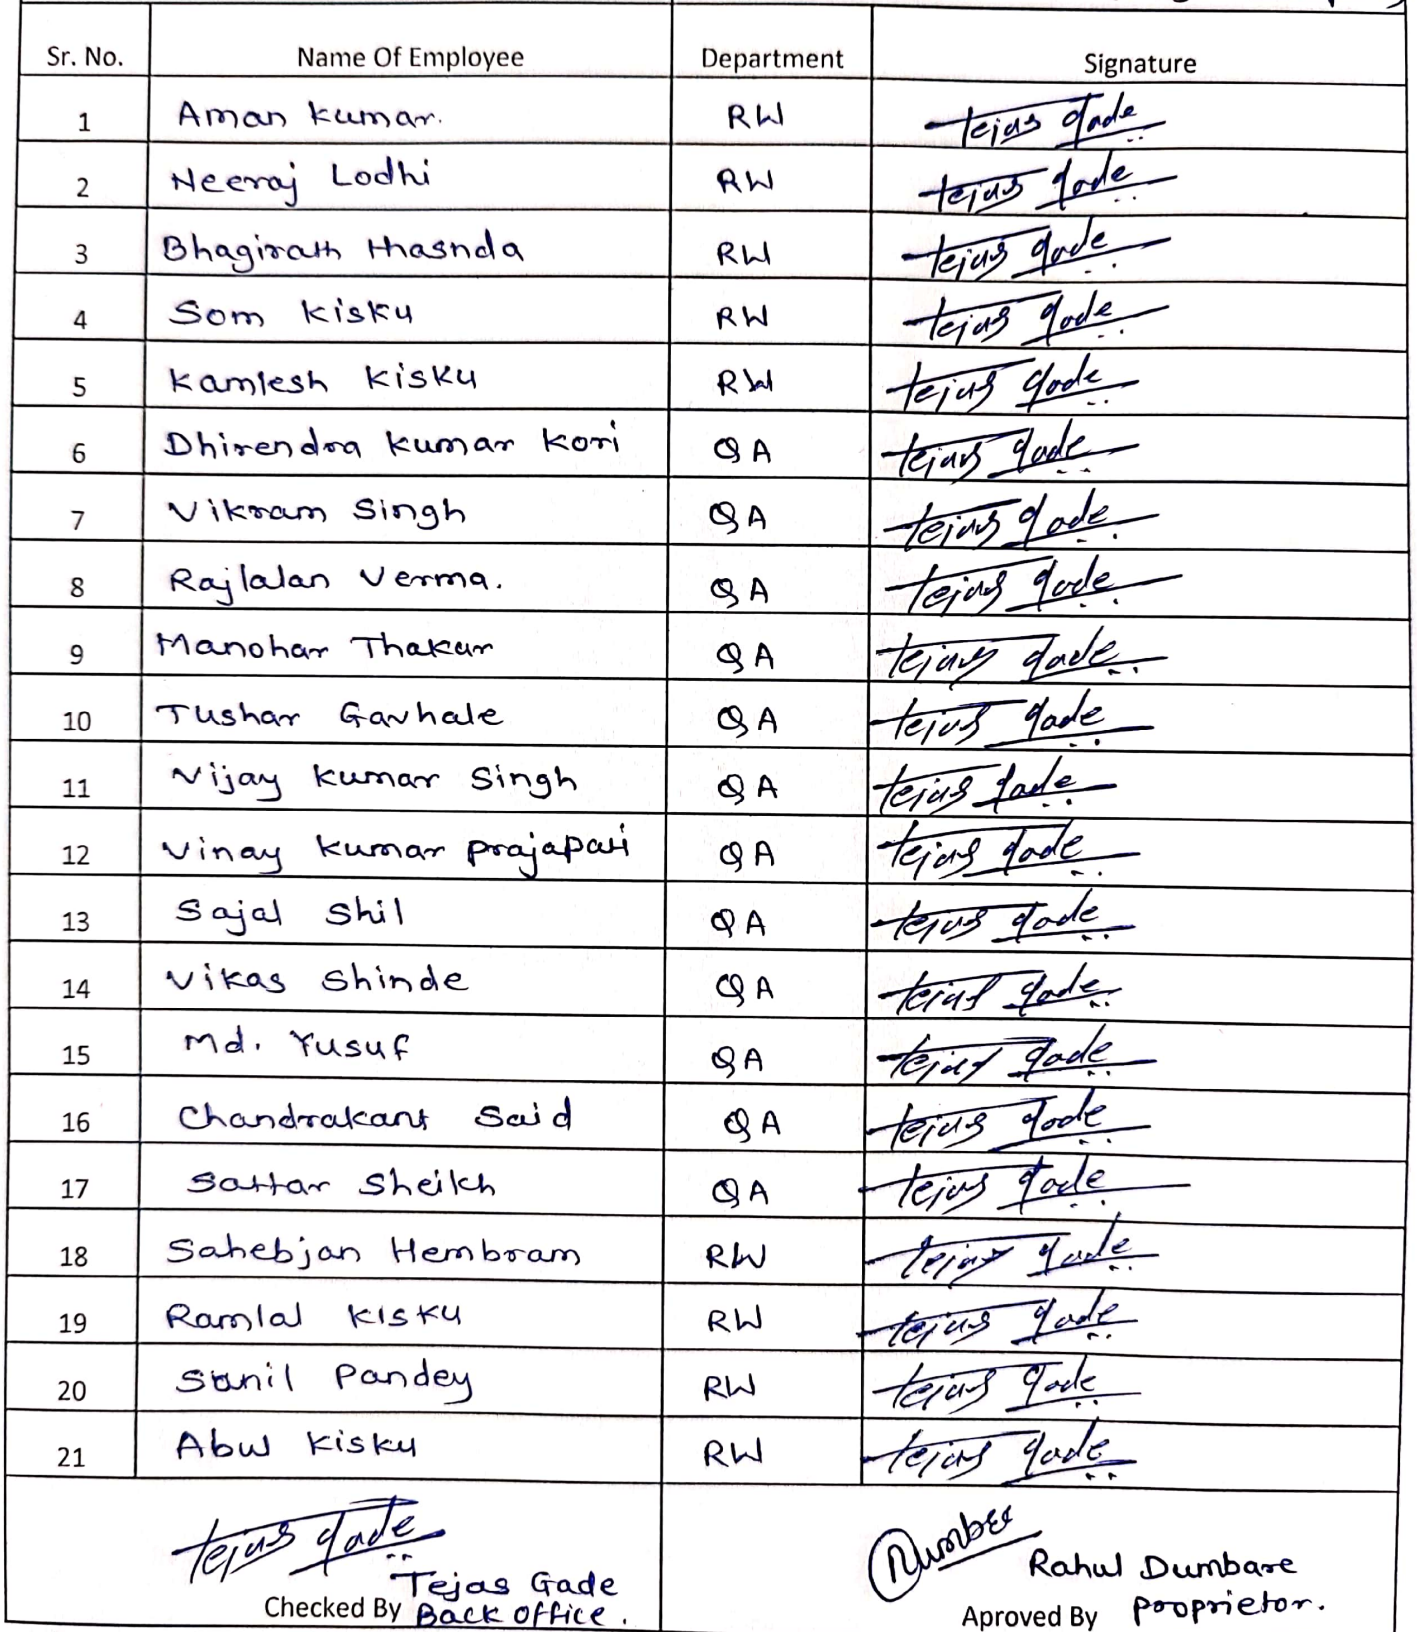 Sr. No. Name Of Employee Department Signature
1 Aman Kumar. RW Tejas Gade
2 Neeraj Lodhi RW Tejas Gade
3 Bhagirath Hasnda RW Tejas Gade
4 Som Kisku RW Tejas Gade
5 Kamlesh Kisku RW Tejas Gade
6 Dhirendra Kumar Kori QA Tejas Gade
7 Vikram Singh QA Tejas Gade
8 Rajlalan Verma. QA Tejas Gade
9 Manohar Thakur QA Tejas Gade
10 Tushar Gavhale QA Tejas Gade
11 Vijay Kumar Singh QA Tejas Gade
12 Vinay Kumar Prajapati QA Tejas Gade
13 Sajal Shil QA Tejas Gade
14 Vikas Shinde QA Tejas Gade
15 Md. Yusuf QA Tejas Gade
16 Chandrakant Said QA Tejas Gade
17 Sattar Sheikh QA Tejas Gade
18 Sahebjan Hembram RW Tejas Gade
19 Ramlal Kisku RW Tejas Gade
20 Sunil Pandey RW Tejas Gade
21 Abul Kisku RW Tejas Gade
Tejas Gade
Tejas Gade
Checked By Back Office.
Dumbre
Rahul Dumbare
Aproved By Proprietor.